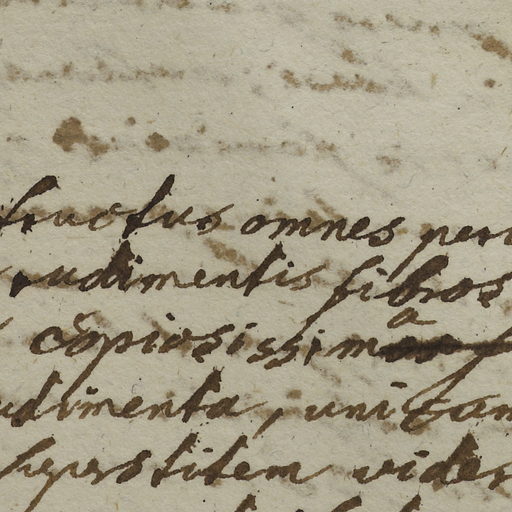 fructus omnes peri
rudimentis fibros
copiosissima
udimenta, unicam
superstitem vider